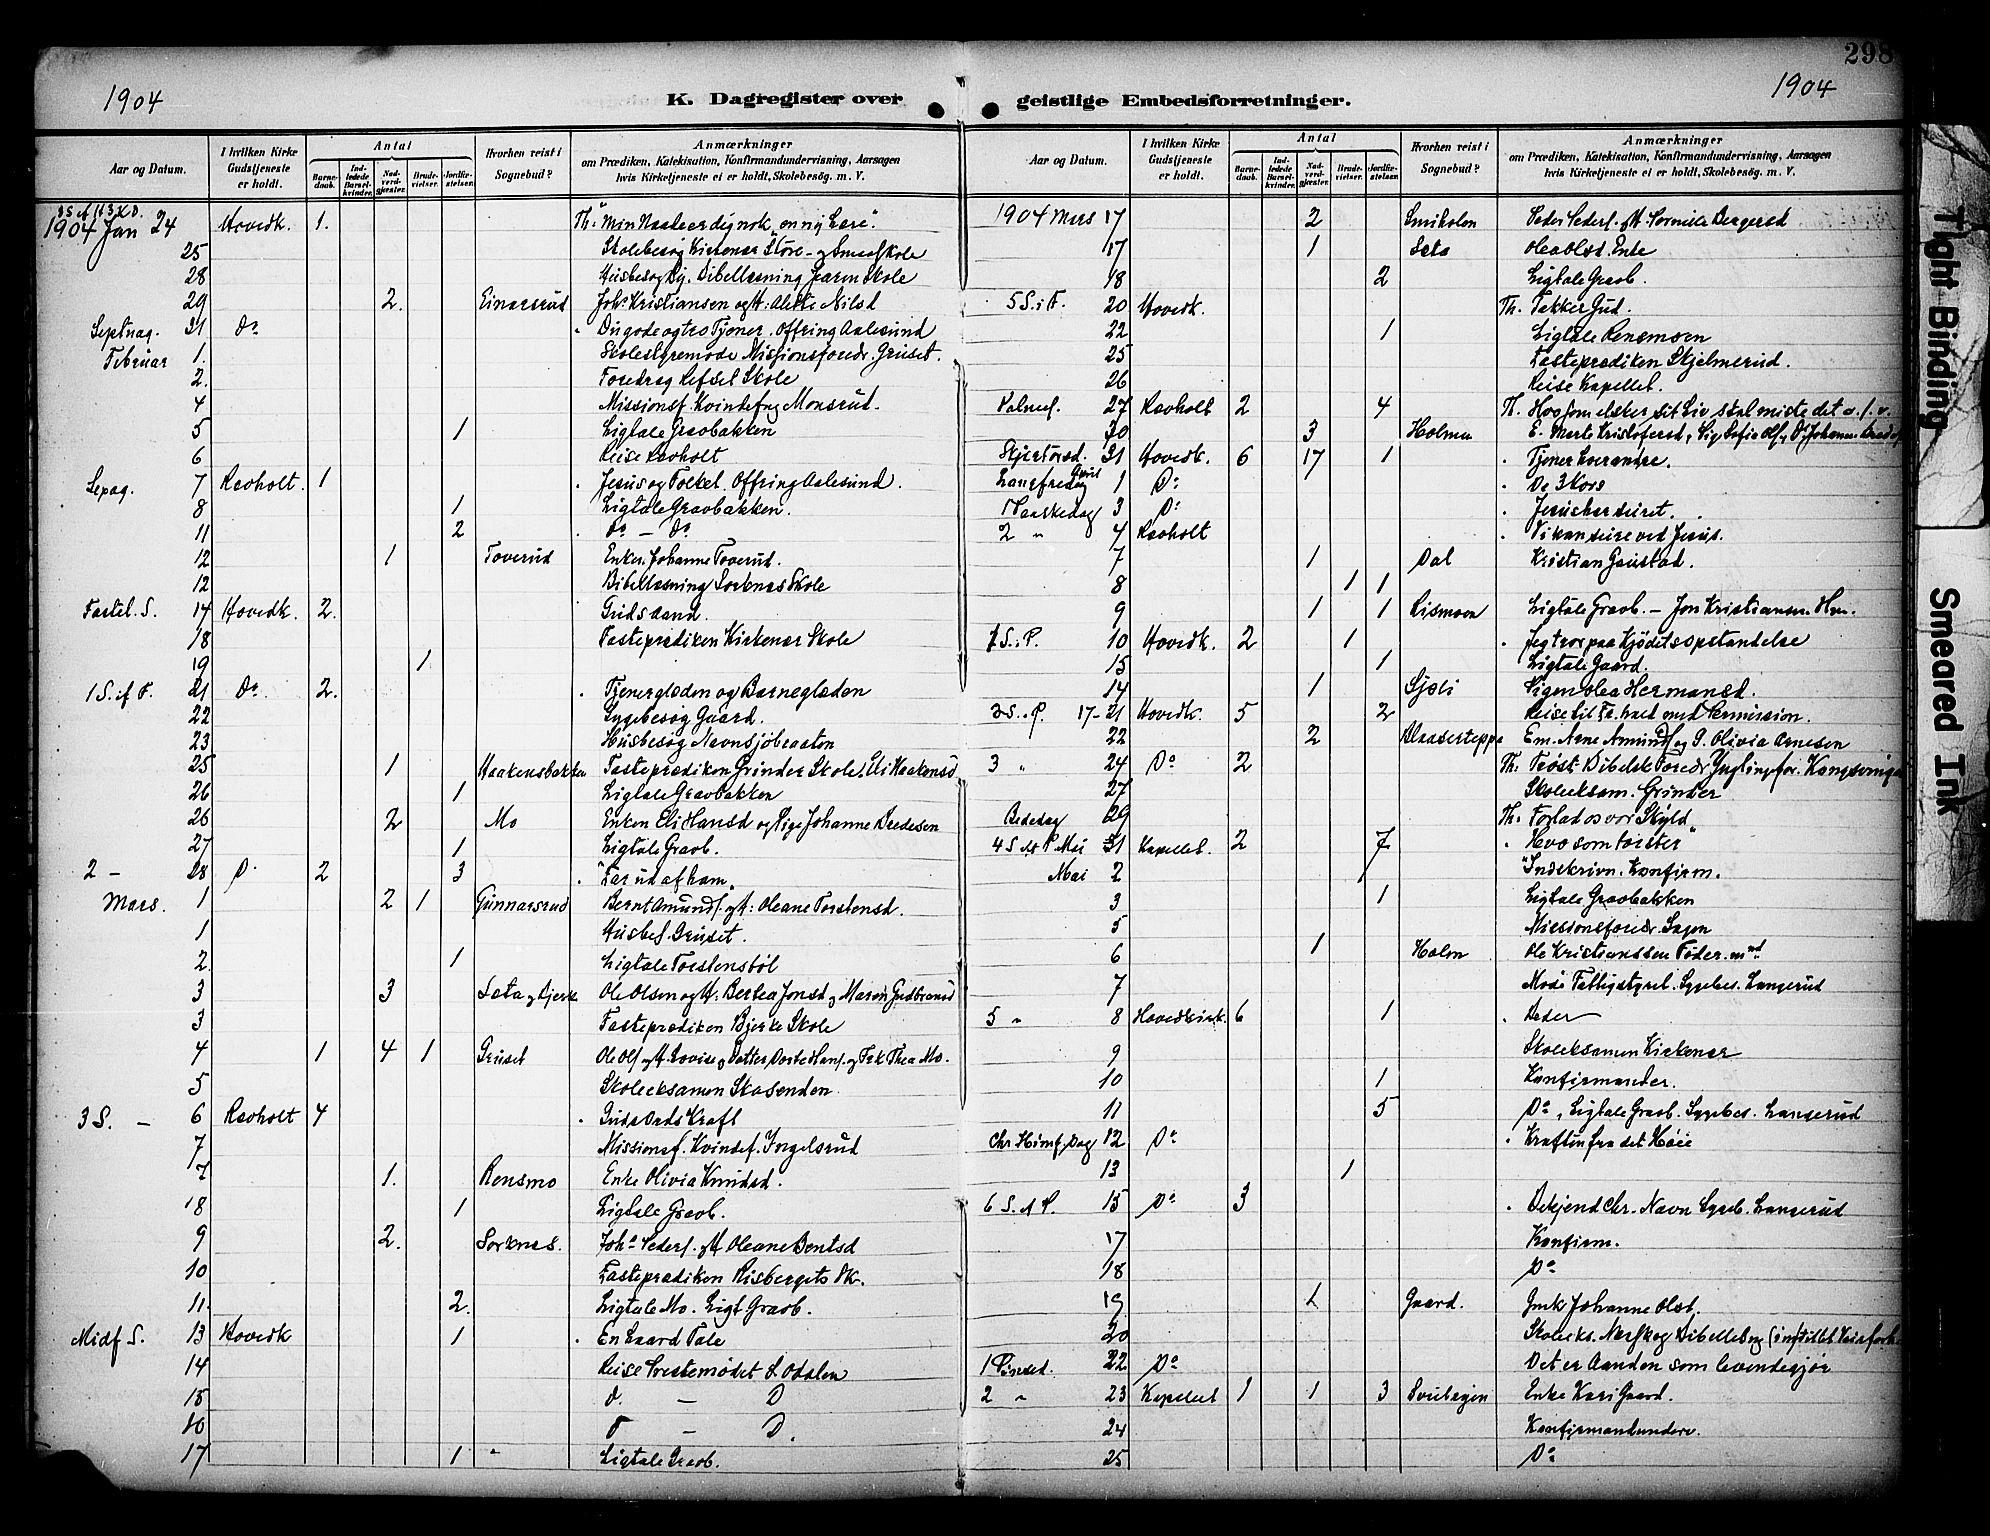 298
1904
K. Dagregister over
geistlige Embedsforretninger.
1904
Aar og Datum.
I hvilken Kirke Gudstjeneste er holdt.
Antal
Barnedaab.
Indledede Barselkvinder.
Nadverdgjester.
Brudevielser.
Jordfæstelser.
Hvorhen reist i Sognebud?
Anmærkninger
om Prædiken, Katekisation, Konfirmandundervisning, Aarsagen
hvis Kirketjeneste ei er holdt, Skolebesøg. m. V.
1904 Jan 24 Hovedk. 1. Th. "Min Naade er dig nok, en ny Lære".
25 Skolebesøg Kirkenær Store- og Smaaskole
28 Husbesøg Bibellæsning Jaren Skole
29 2. Einarsrud Johs Kristiansen og H: Alette Nilsd
Septuag. 31 Do Du gode og tro Tjener. Offring Aalesund
Februar 1. Skolestyremøde Missionsforedr. Gruset.
2. Foredrag Refsel Skole
4 Missionsf. Kvindefng Monsrud.
5 1 Ligtale Gravbakken
6 Reise Ravholt
Sexag. 7 Ravholt. 1 Jesus og Folket. Offring Aalesund.
8 1 Ligtale Gravbakken.
11 2 Do - Do
12 1 Toverud Enken Johanne Toverud.
12 Bibellæsning Sorknæs Skole
Fastel. S. 14 Hovedk. 2. Guds Aand.
18 Fasteprædiken Kirkenær Skole
19 1
1 S. i F. 21 Do. 2. Tjenerglæden og Barneglæden
22 Sygebesøg Gaard.
23 Husbesøg Navnsjøbraaten
25 1 Haakensbakken Fasteprædiken Grinder Skole, Eli Haakensd
26 1 Ligtale Gravbakken
26 2 Mo Enken Eli Hansd og Pige Johanne Bredesen
27 1 Ligtale Gravb.
2 - 28 D. 2 3 "Far ud af ham"
Mars. 1 2 1 Gunnarsrud Bernt Amunds. og H: Oleane Torstensd.
1 Husbes. Gruset.
2. 1 Ligtale Torstensbøl
3 3 Sæta og Bjerk Ole Olsen og H: Bertea Jonsd og Maren Gudbransd
3 Fasteprædiken Bjerke Skole
4 1 4 1 Gruset Ole Ols og H Lovise og Datter Dorte Hans. og Frk Thea Mo.
5 Skoleeksamen Skasenden
3 S. - 6 Ravholt 4 Guds Ords Kraft
7 Missionsf. Kvindef. Ingelsrud
7 1. Rensmo Enke Olivia Knudsd.
18 1 Ligtale Gravb.
9 2. Sorknæs. Johs Peders. og H Oleane Berntsd
10 Fasteprædiken Risberget Sk.
11. 2. Ligtale Mo. Ligt. Gravb.
Midf S. 13 Hovedk 1 En haard Tale
14 Reise Prestemødet S. Odalen
15 D. - D
16 D - D.
17 1 " Ligtale Gravb.
Aar og Datum.
I hvilken Kirke Gudstjeneste er holdt.
Antal
Barnedaab.
Indledede Barselkvinder.
Nadverdgjester.
Brudevielser.
Jordfæstelser.
Hvorhen reist i Sognebud?
Anmærkninger
om Prædiken, Katekisation, Konfirmandundervisning, Aarsagen
hvis Kirketjeneste ei er holdt, Skolebesøg. m. V.
1904 Mars 17 2 Smiholen Peder Peders. og H Pernille Bergersd
17 1 Sæta Olea Olsd. Enke
18 2 Ligtale Gravb.
5 S. i F. 20 Hovedk. Th. Takker Gud.
22 1 Ligtale Rensmoen
25 Fasteprædiken Skjelmerud.
26 Reise Kapellet.
Palmes. 27 Ravholt 2 4 Th. Hvo som elsker sit Liv skal miste det o. s. v.
30 3 Holmen E. Marte Kristofersd,
Skjærtorsd. 31 Hovedk. 6 17 1 Tjener hverandre.
Langfredag April 1 Do De 3 Kors
1 Paaskedag 3 Do Jesus har seiret.
2 " 4 Ravholt Vi kan seire ved Jesus.
7 1 Dal Kristian Gaustad.
8 1 1
9 1 1 Rismoen Ligtale Gravb. - Jon Kristiansen Hm.
1 S. i P. 10 Hovedk. 2 1 Jeg tror paa Kjødets opstandelse
15 1 Ligtale Gaard.
14 1 Sjøli Pigen Olea Hermansd.
2 S. P. 17-21 Hovedk. 5 2 Reise til med Permission.
22 2 Em. Arne Amunds og P. Olivia Arnesen
3 " 24 Do 2 Th: Trøst. Bibelsk Foredr Ynglingfor. Kongsvinger
27 Skoleeksam. Grinder
Bededag 29 Th: Forlad os vor Skyld
4 S. P. Mai 31 Kapellet. 2 7 "Hvo som tørster"
Mai 2 Indskrivn. Konfirm.
3 1 Ligtale Gravbakken
5 Missionsforedr. Lagen
6 1 Holm Ole Kristianssen Føder.mnd.
7 Møde Fattigstyret. Sygebes. Langerud
5 " 8 Hovedkirk. 6 1 Beder
9 Skoleeksamen Kirkenær
10 1 Konfirmander.
11 5 Do, Ligtale Gravb. Sygebes. Langerud
Chr Himf. Dag 12 Do Kraften fra det Høie
13 1
6 S. P. 15 Do 3 Bekjend Chr. Navn Sygeb. Langerud
17 Konfirm.
18 Do
19 1 Gaard. Gmk Johanne Olsd.
20 Skoleeks.
1 Pinsed. 22 Do Det er Aanden som levendegjør
2 " 23 Kapellet 1 1 3 Svenbyen Enke Kari Gaard.
24 Konfirmandunderv.
25 Do
Tight Binding
Smeared Ink